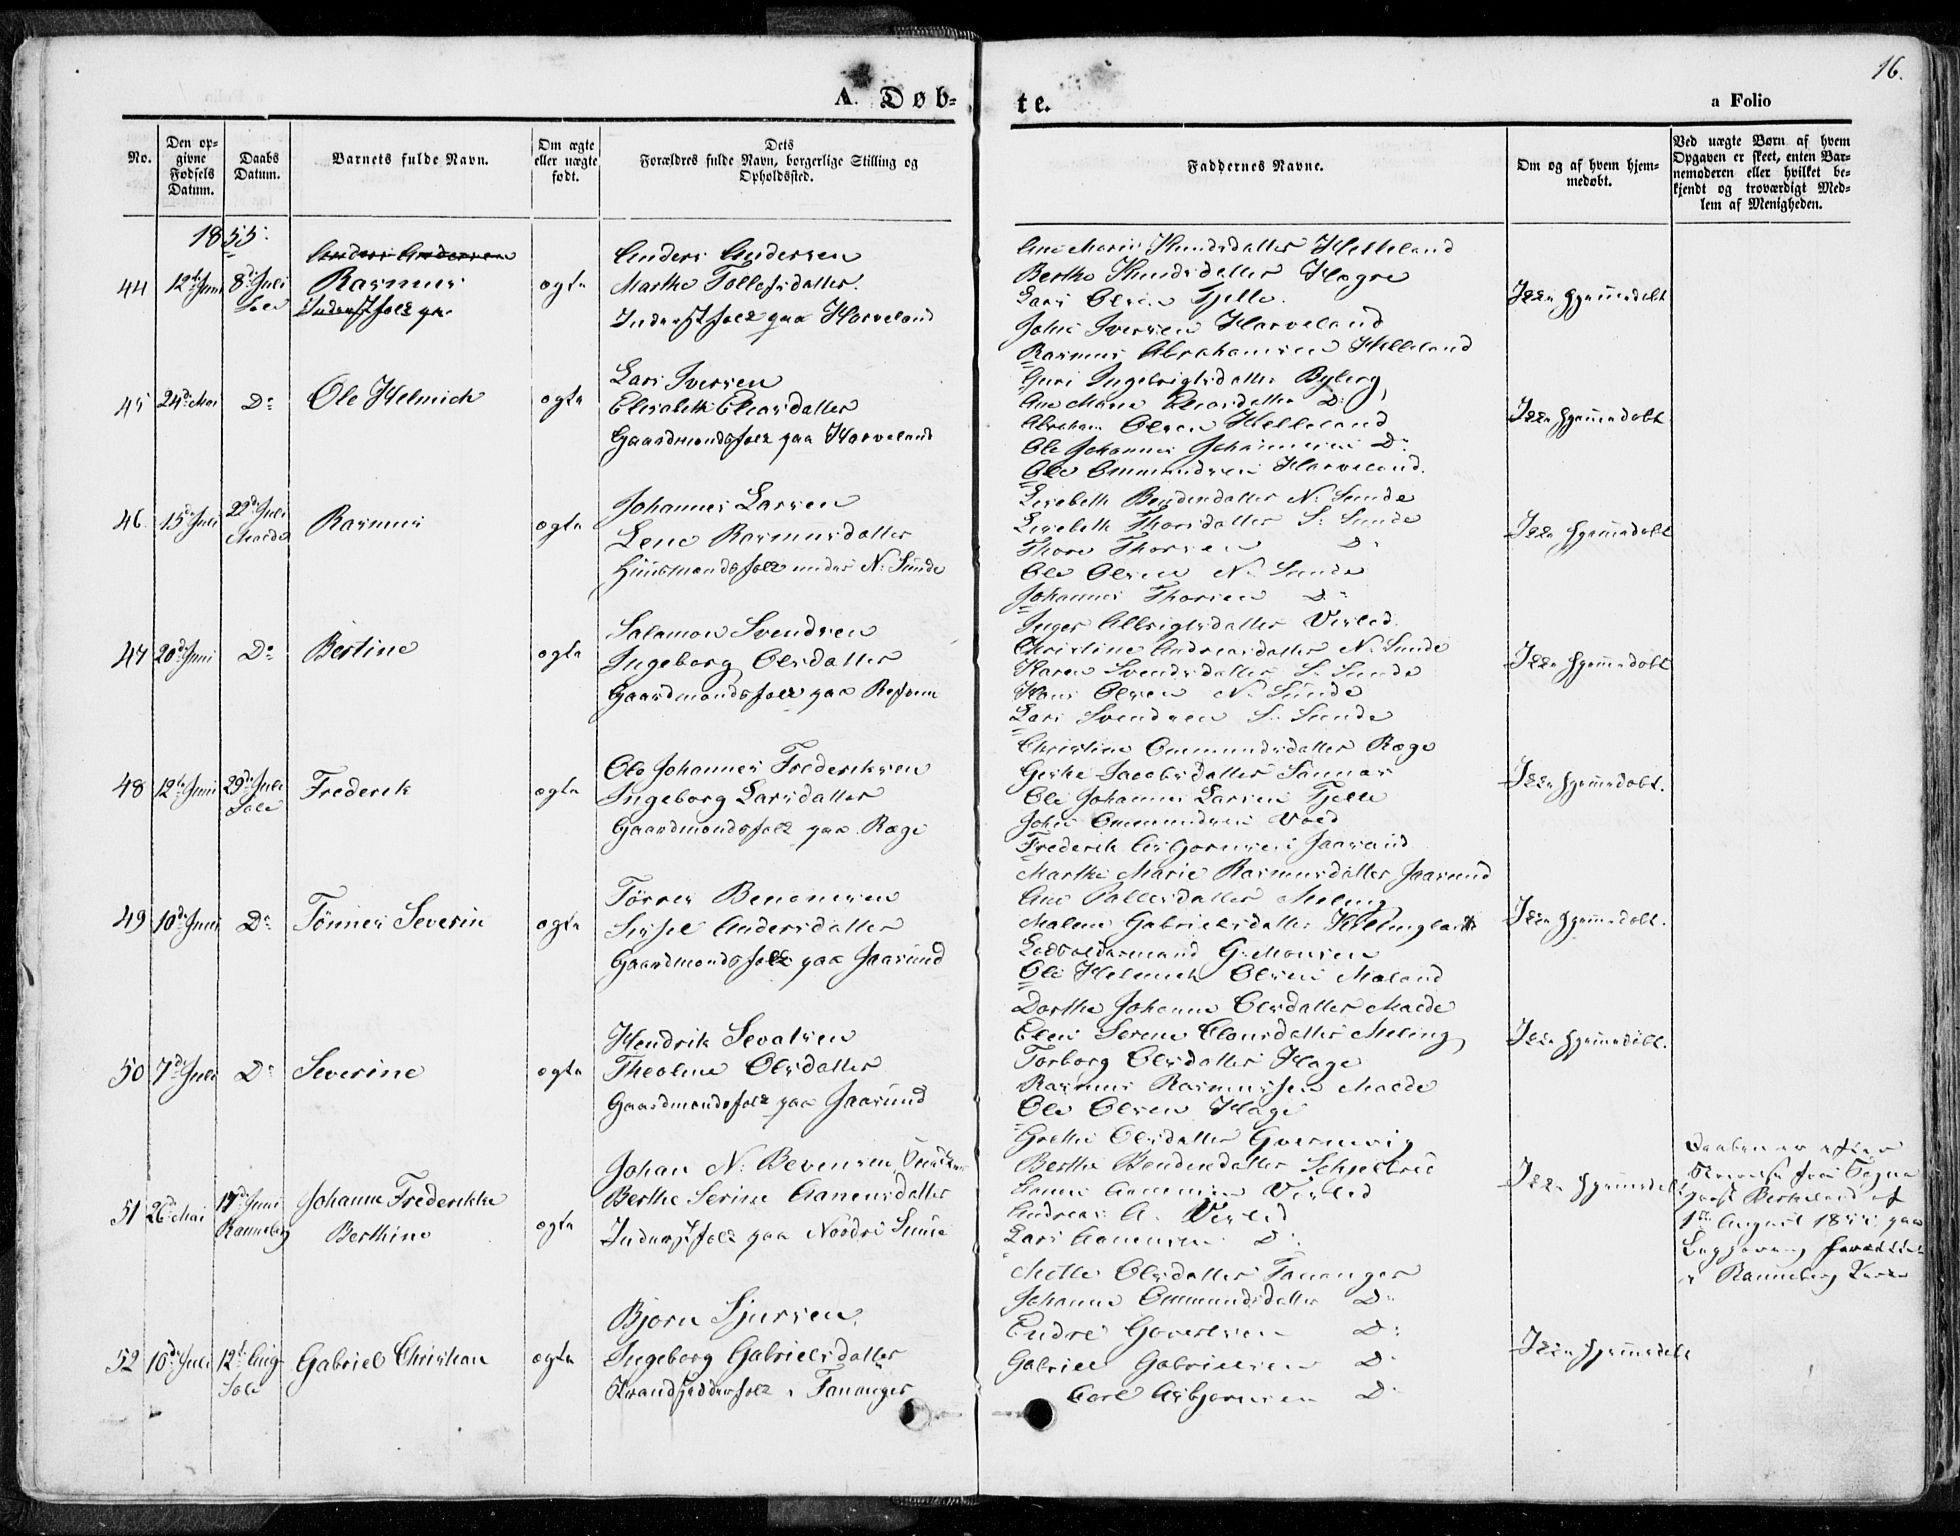 16.
A. Døb-
te.
a Folio
No.
Den op-
givne
Fødsels
Datum.
Daabs
Datum.
Barnets fulde Navn.
Om ægte
eller uægte
født.
Dets
Forældres fulde Navn, borgerlige Stilling og
Opholdssted.
Faddernes Navne.
Om og af hvem hjem-
medøbt.
Ved uægte Børn af hvem
Opgaven er skeet, enten Bar-
nemoderen eller hvilket be-
kjendt og troværdigt Med-
lem af Menigheden.
1855.
44 12te Juni 8de Juli Sole
Anders Andersen
Rasmus
Inderstfolk paa
ægte
Anders Andersen
Marthe Tollefsdatter
Inderstfolk paa Harveland
Ane Marie Knudsdatter Helleland
Berthe Knudsdatter Hagre
Lars Olsen Tjelle
John Iversen Harveland
Rasmus Abrahamsen Helleland
Ikke hjemmedøbt
45 24de Mai Do
Ole Helmich
ægte
Lars Iversen
Elisabeth Eliasdatter
Gaardmandsfolk paa Harveland
Guri Ingebrigtsdatter Byberg
Ane Marie Eliasdatter Do
Abraham Olsen Helleland
Ole Johannes Johannesen Do
Ole Ommundsen Harveland.
Ikke hjemmedøbt
46. 15de Juli 22de Juli
Rasmus
ægte
Johannes Larsen
Lene Rasmusdatter
Huusmandsfolk under N. Sunde
Lisebeth Bendsdatter N. Sunde
Lisebeth Thorsdatter S. Sunde
Thore Thorsen Do
Ole Olsen N. Sunde
Johannes Thorsen Do
Ikke hjemmedøbt
47 20de Juni Do
Bertine
ægte
Salamon Svendsen
Ingeborg Olsdatter
Gaardmandsfolk paa Refsnes
Inger Albrigtsdatter Visted
Christine Andreasdatter N. Sunde
Karen Svendsdatter S. Sunde
Hans Olsen N. Sunde
Lars Svendsen S. Sunde
Ikke hjemmedøbt
48 12te Juni 29de Juli Sole
Frederik
ægte
Ole Johannes Frederiksen
Ingeborg Larsdatter
Gaardmandsfolk paa Ræge
Christine Ommundsdatter Ræge
Gjerthe Jacobsdatter
Ole Johannes Larsen Tjelle
John Ommundsen
Frederik Asgormsen Jaasund
Ikke hjemmedøbt.
49 10de Juni Do
Tønnes Severin
ægte
Tørres Benonisen
Sissel Andersdatter
Gaardmandsfolk paa Jaasund
Marthe Marie Rasmusdatter Jaasund
Ane Pallesdatter Meling
Malene Gabrielsdatter
G. Monsen
Ole Helmich Olsen Meland
Ikke hjemmedøbt.
50 7de Juli Do
Severine
ægte
Hendrik Sevatsen
Theoline Olsdatter
Gaardmandsfolk paa Jaasund
Dorthe Johanne Olsdatter Malde
Elen Serene Clausdatter Meling
Torborg Olsdatter Hage
Rasmus Rasmussen Malde
Ole Olsen Hage
Ikke hjemmedøbt.
51 26de Mai 17de Juni Ranneberg
Johanne Frederikke
Berthine
ægte
Johan N. Bevensen, Snedker
Berthe Serine Aanensdatter
Inderstfolk paa Nordre Sunde
Grethe Olsdatter
Berthe Bendsdatter
Hanne Aanensen Visted
Andreas A. Visted
Lars Aanensen Do
Ikke hjemmedøbt
Daaben er efter
fra Sogne
præst Berkeland af
1ste August 1855 paa
i Ranneberg Kirke
52 16de Juli 12te Aug. Sole
Gabriel Christian
ægte
Bjørn Sjursen
Ingeborg Gabrielsdatter
Strandsidderfolk i Tananger
Mette Olsdatter Tananger
Johanne Ommundsdatter Do
Endre Govertsen Do
Gabriel Gabrielsen Do
Carl Asbjørnsen Do
Ikke hjemmedøbt